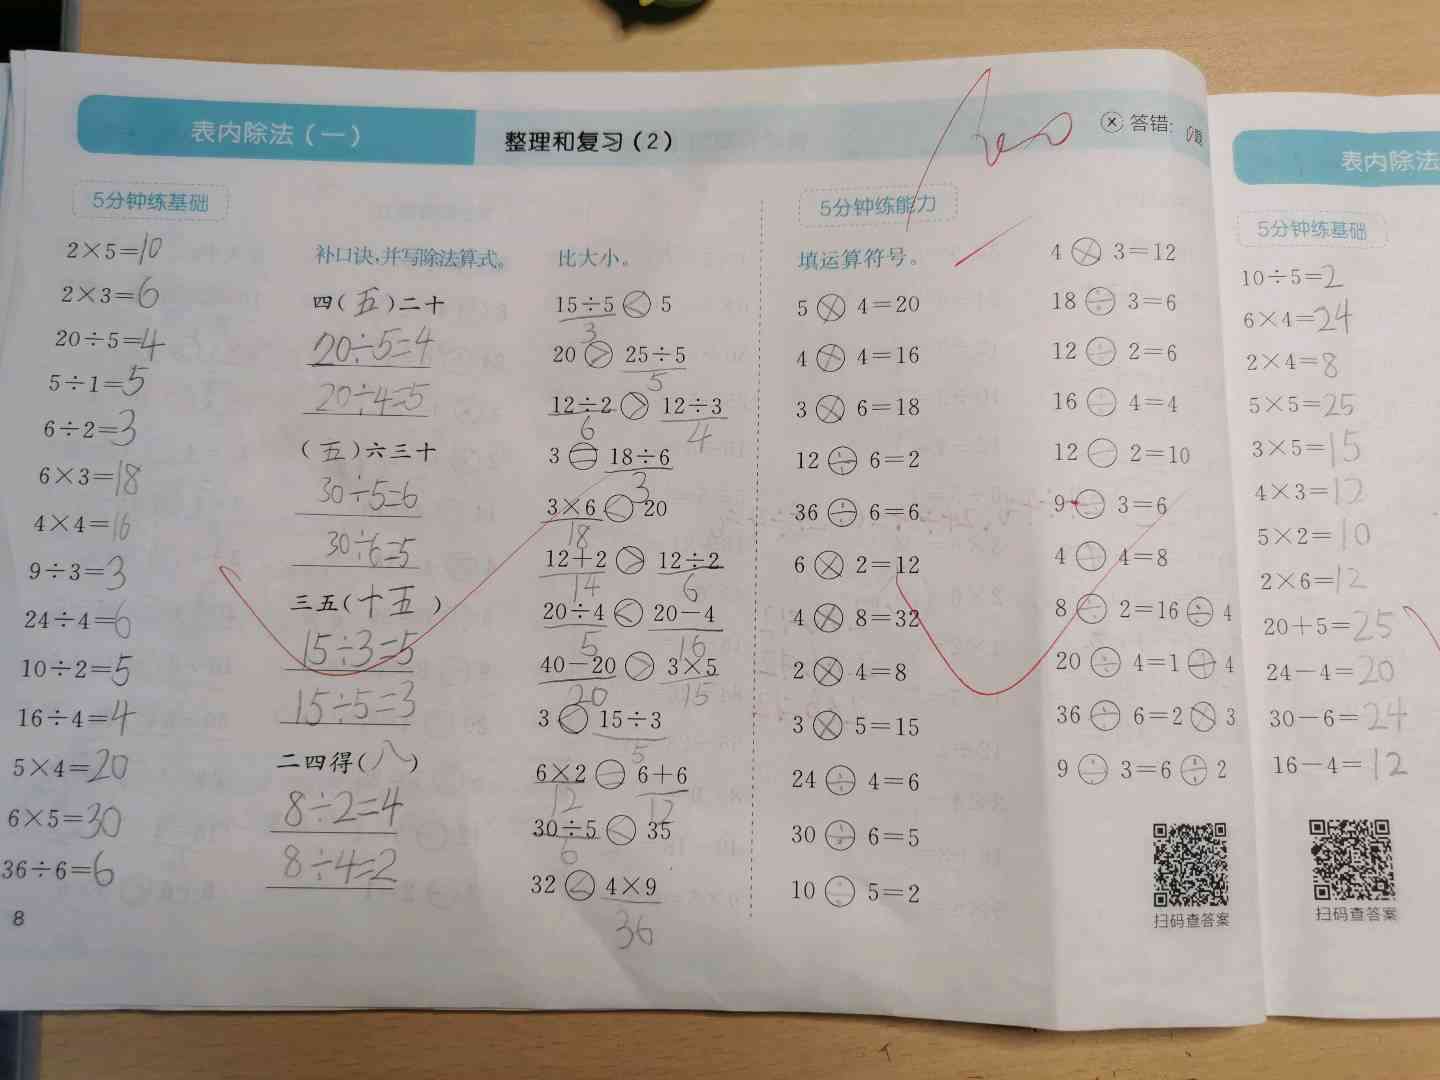 表内除法（一）
整理和复习（2）
100
答错：
0题
5分钟练基础
2×5=10
2×3=6
20÷5=4
5÷1=5
6÷2=3
6×3=18
4×4=16
9÷3=3
24÷4=6
10÷2=5
16÷4=4
5×4=20
6×5=30
36÷6=6
8
补口诀，并写除法算式。
四（五）二十
20÷5=4
20÷4=5
（五）六三十
30÷5=6
30÷6=5
三五（十五）
15÷3=5
15÷5=3
二四得（八）
8÷2=4
8÷4=2
比大小。
15÷5<5
3
20>25÷5
5
12÷2>12÷3
6 4
3=18÷6
3
3×6<20
18
12+2>12÷2
14 6
20÷4<20-4
5 16
40-20>3×5
20 15
3<15÷3
5
6×2=6+6
12 12
30÷5<35
6
32<4×9
36
5分钟练能力
填运算符号。
5×4=20
4×4=16
3×6=18
12÷6=2
36÷6=6
6×2=12
4×8=32
2×4=8
3×5=15
24÷4=6
30÷6=5
10÷5=2
4×3=12
18÷3=6
12÷2=6
16÷4=4
12-2=10
9-3=6
4+4=8
8 2=16÷4
20÷4=1+4
36÷6=2×3
9 3=6 2
扫码查答案
表内除法
5分钟练基础
10÷5=2
6×4=24
2×4=8
5×5=25
3×5=15
4×3=12
5×2=10
2×6=12
20+5=25
24-4=20
30-6=24
16-4=12
扫码查答案